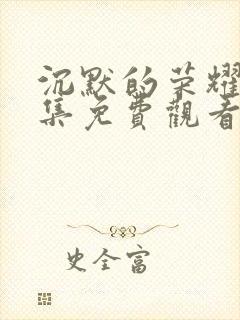 沉默的荣耀
集免費觀看
史全富